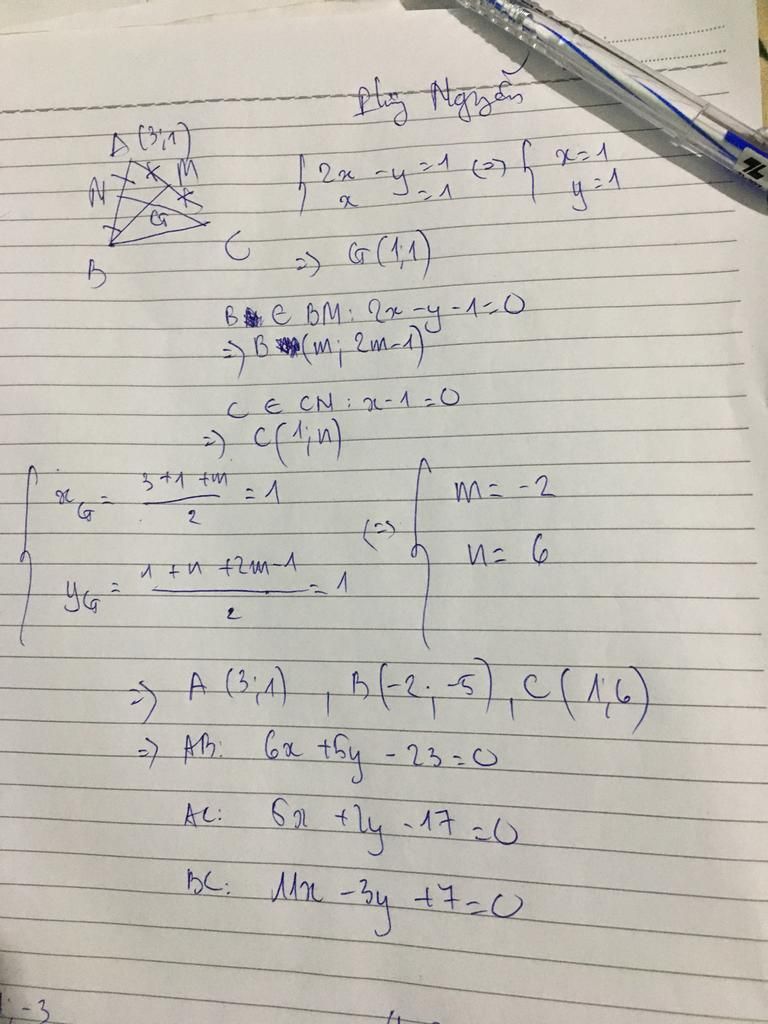 Nguyễn
A (3;1)
N
M
G
B
C
{ 2x - y = 1
x = 1 (=> { x = 1
y = 1
=> G(1;1)
B ∈ BM: 2x - y - 1 = 0
=> B (m; 2m-1)
C ∈ CN: x - 1 = 0
=> C(1;n)
{ xG = (3+1+m)/2 = 1
yG = (1+n+2m-1)/2 = 1
(=> { m = -2
n = 6
=> A (3;1), B(-2; -5), C (1;6)
=> AB: 6x + 5y - 23 = 0
AC: 5x + 2y - 17 = 0
BC: 11x - 3y + 7 = 0
; -3